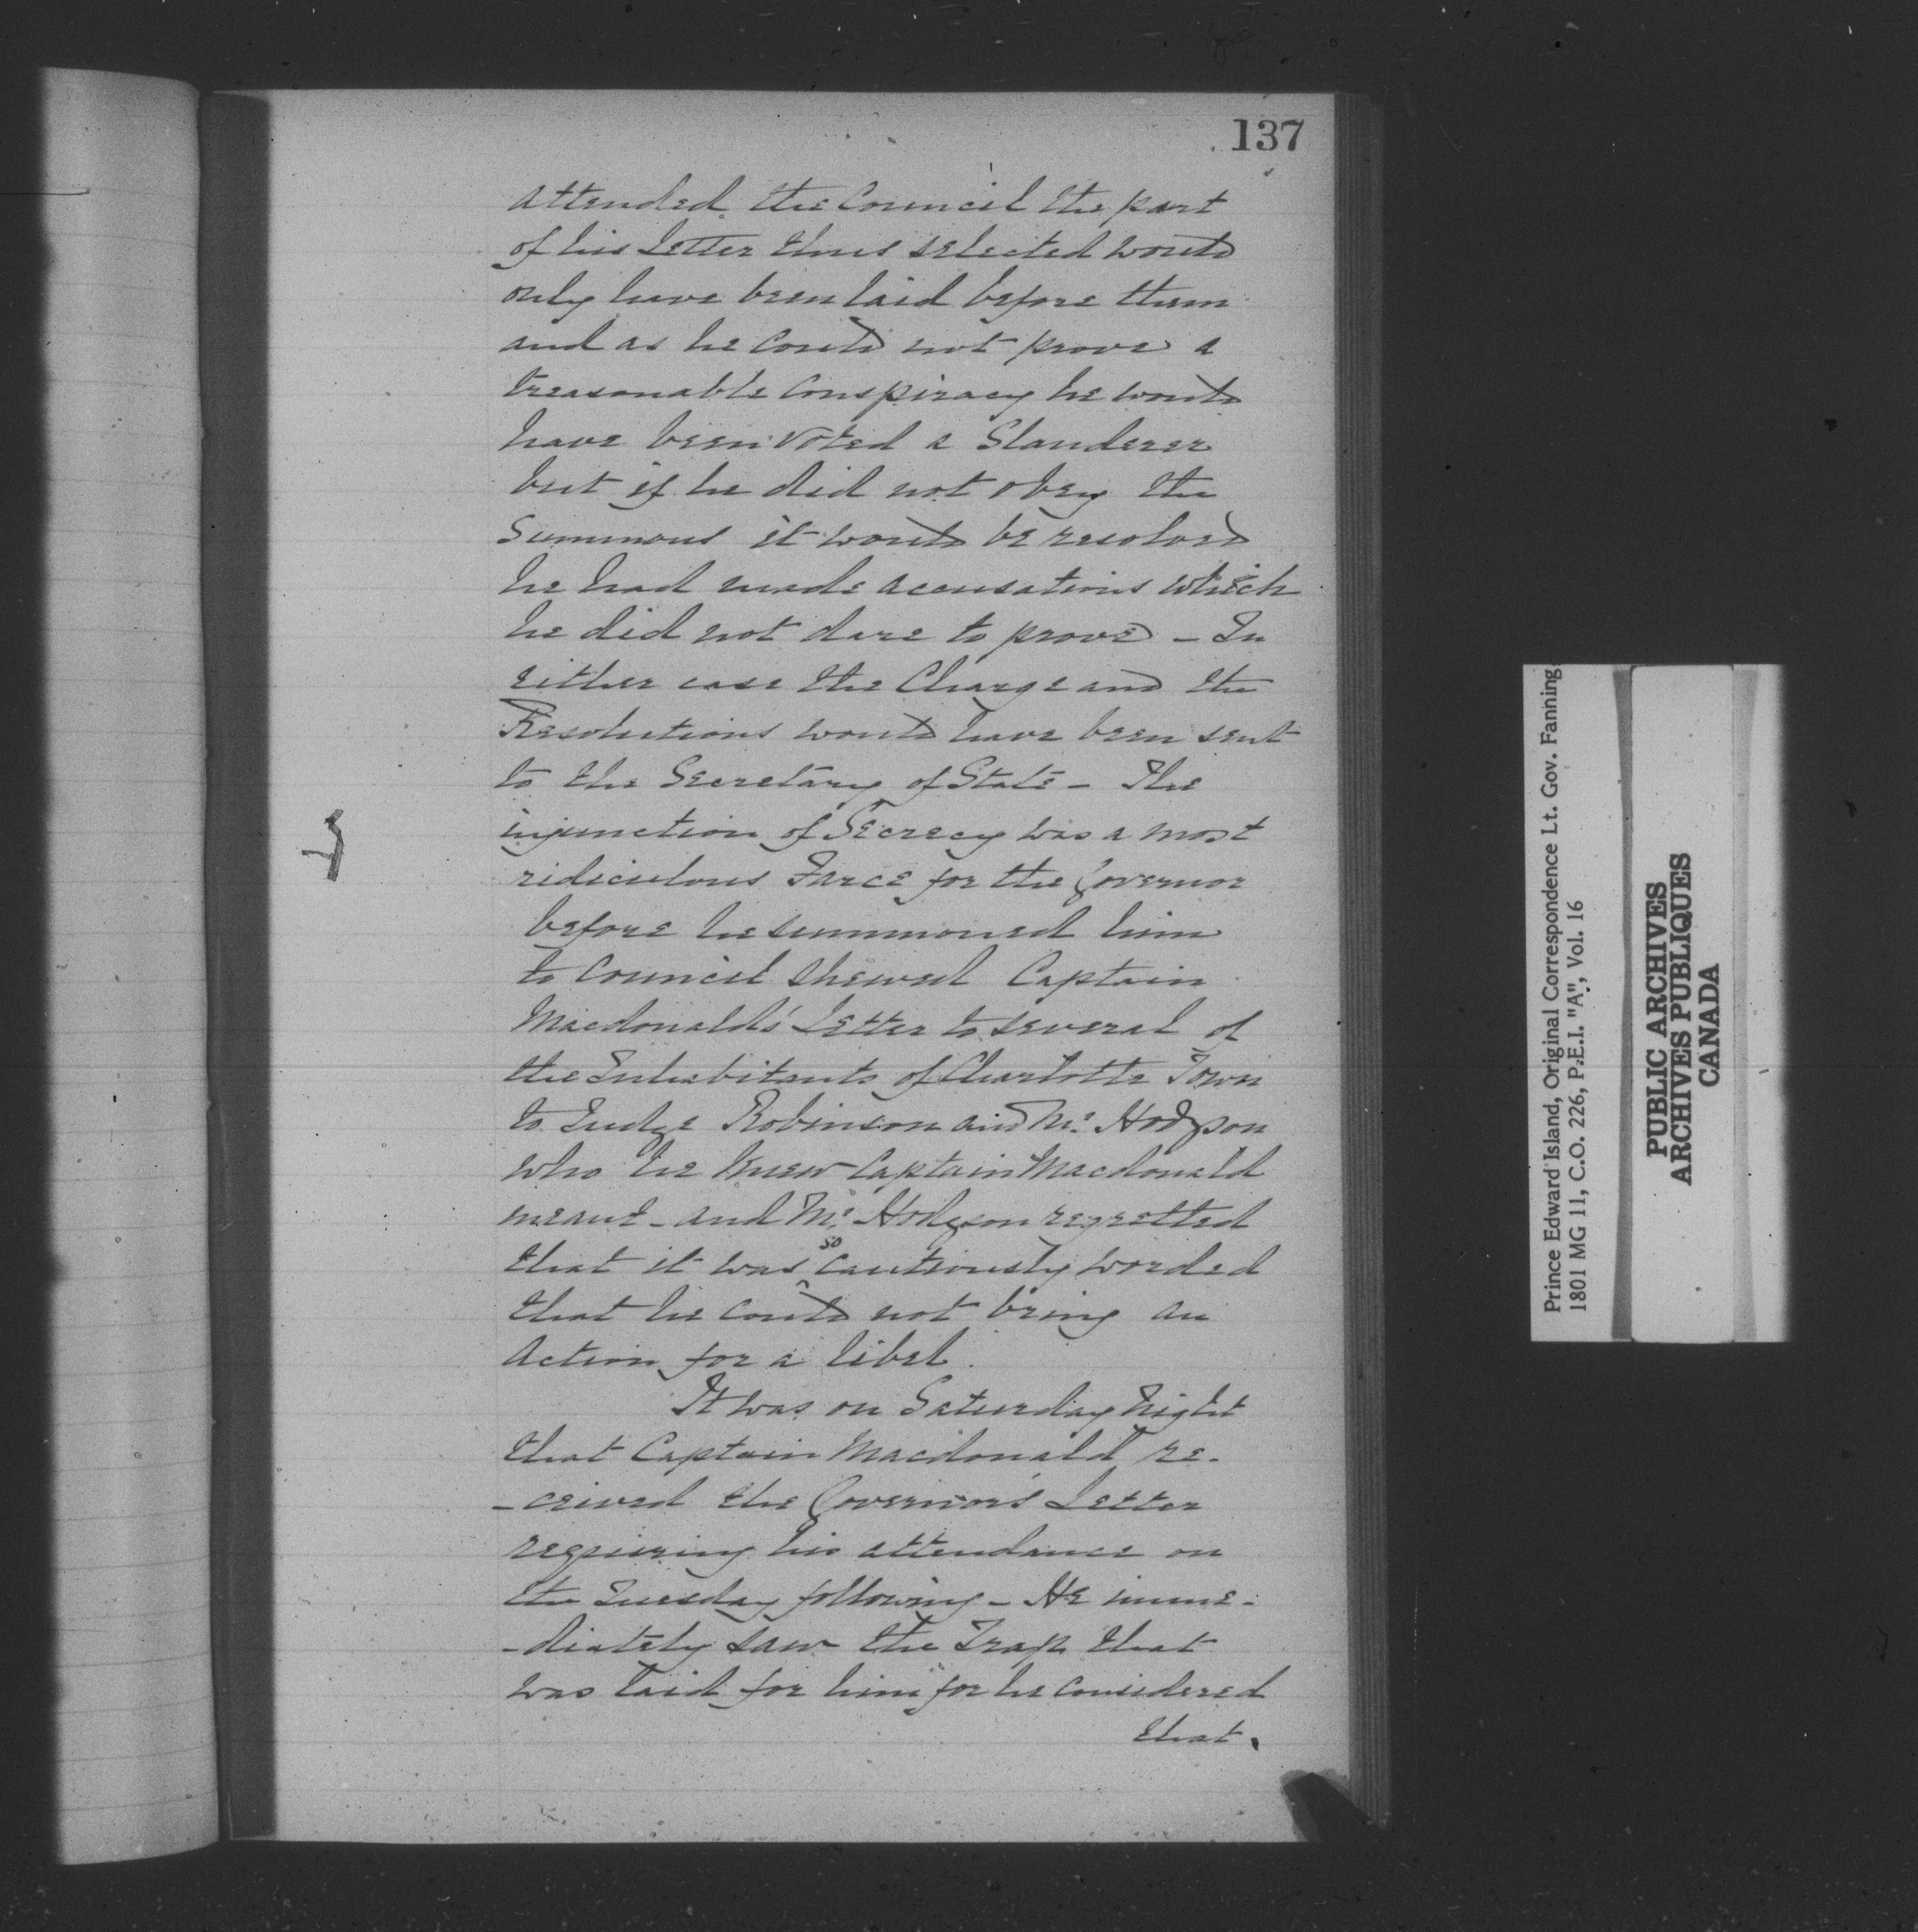 137
attended the Council the part
of his Letter thus selected would
only have been laid before them
and as he could not prove a
treasonable Conspiracy he would
have been voted a Slanderer
but if he did not obey the
Summons it would be resolved
he had made accusations which
he did not dare to prove - In
either case the Charge and the
Resolutions would have been sent
to the Secretary of State - The
injunction of Secrecy was a most
ridiculous Farce for the Governor
before he summoned him
to Council shewed Captain
Macdonald's Letter to several of
the Inhabitants of Charlotte Town
to Judge Robinson and Mr. Hodgson
who he knew Captain Macdonald
meant - and Mr. Hodgson regretted
that it was so cautiously worded
that he could not bring an
Action for a libel.
It was on Saturday Night
that Captain Macdonald re-
-ceived the Governor's Letter
requiring his attendance on
the Tuesday following - He imme-
-diately saw the Trap that
was laid for him for he considered
that.
Prince Edward Island, Original Correspondence Lt. Gov. Fanning
1801 MG 11, C.O. 226, P.E.I. "A", Vol. 16
PUBLIC ARCHIVES
ARCHIVES PUBLIQUES
CANADA